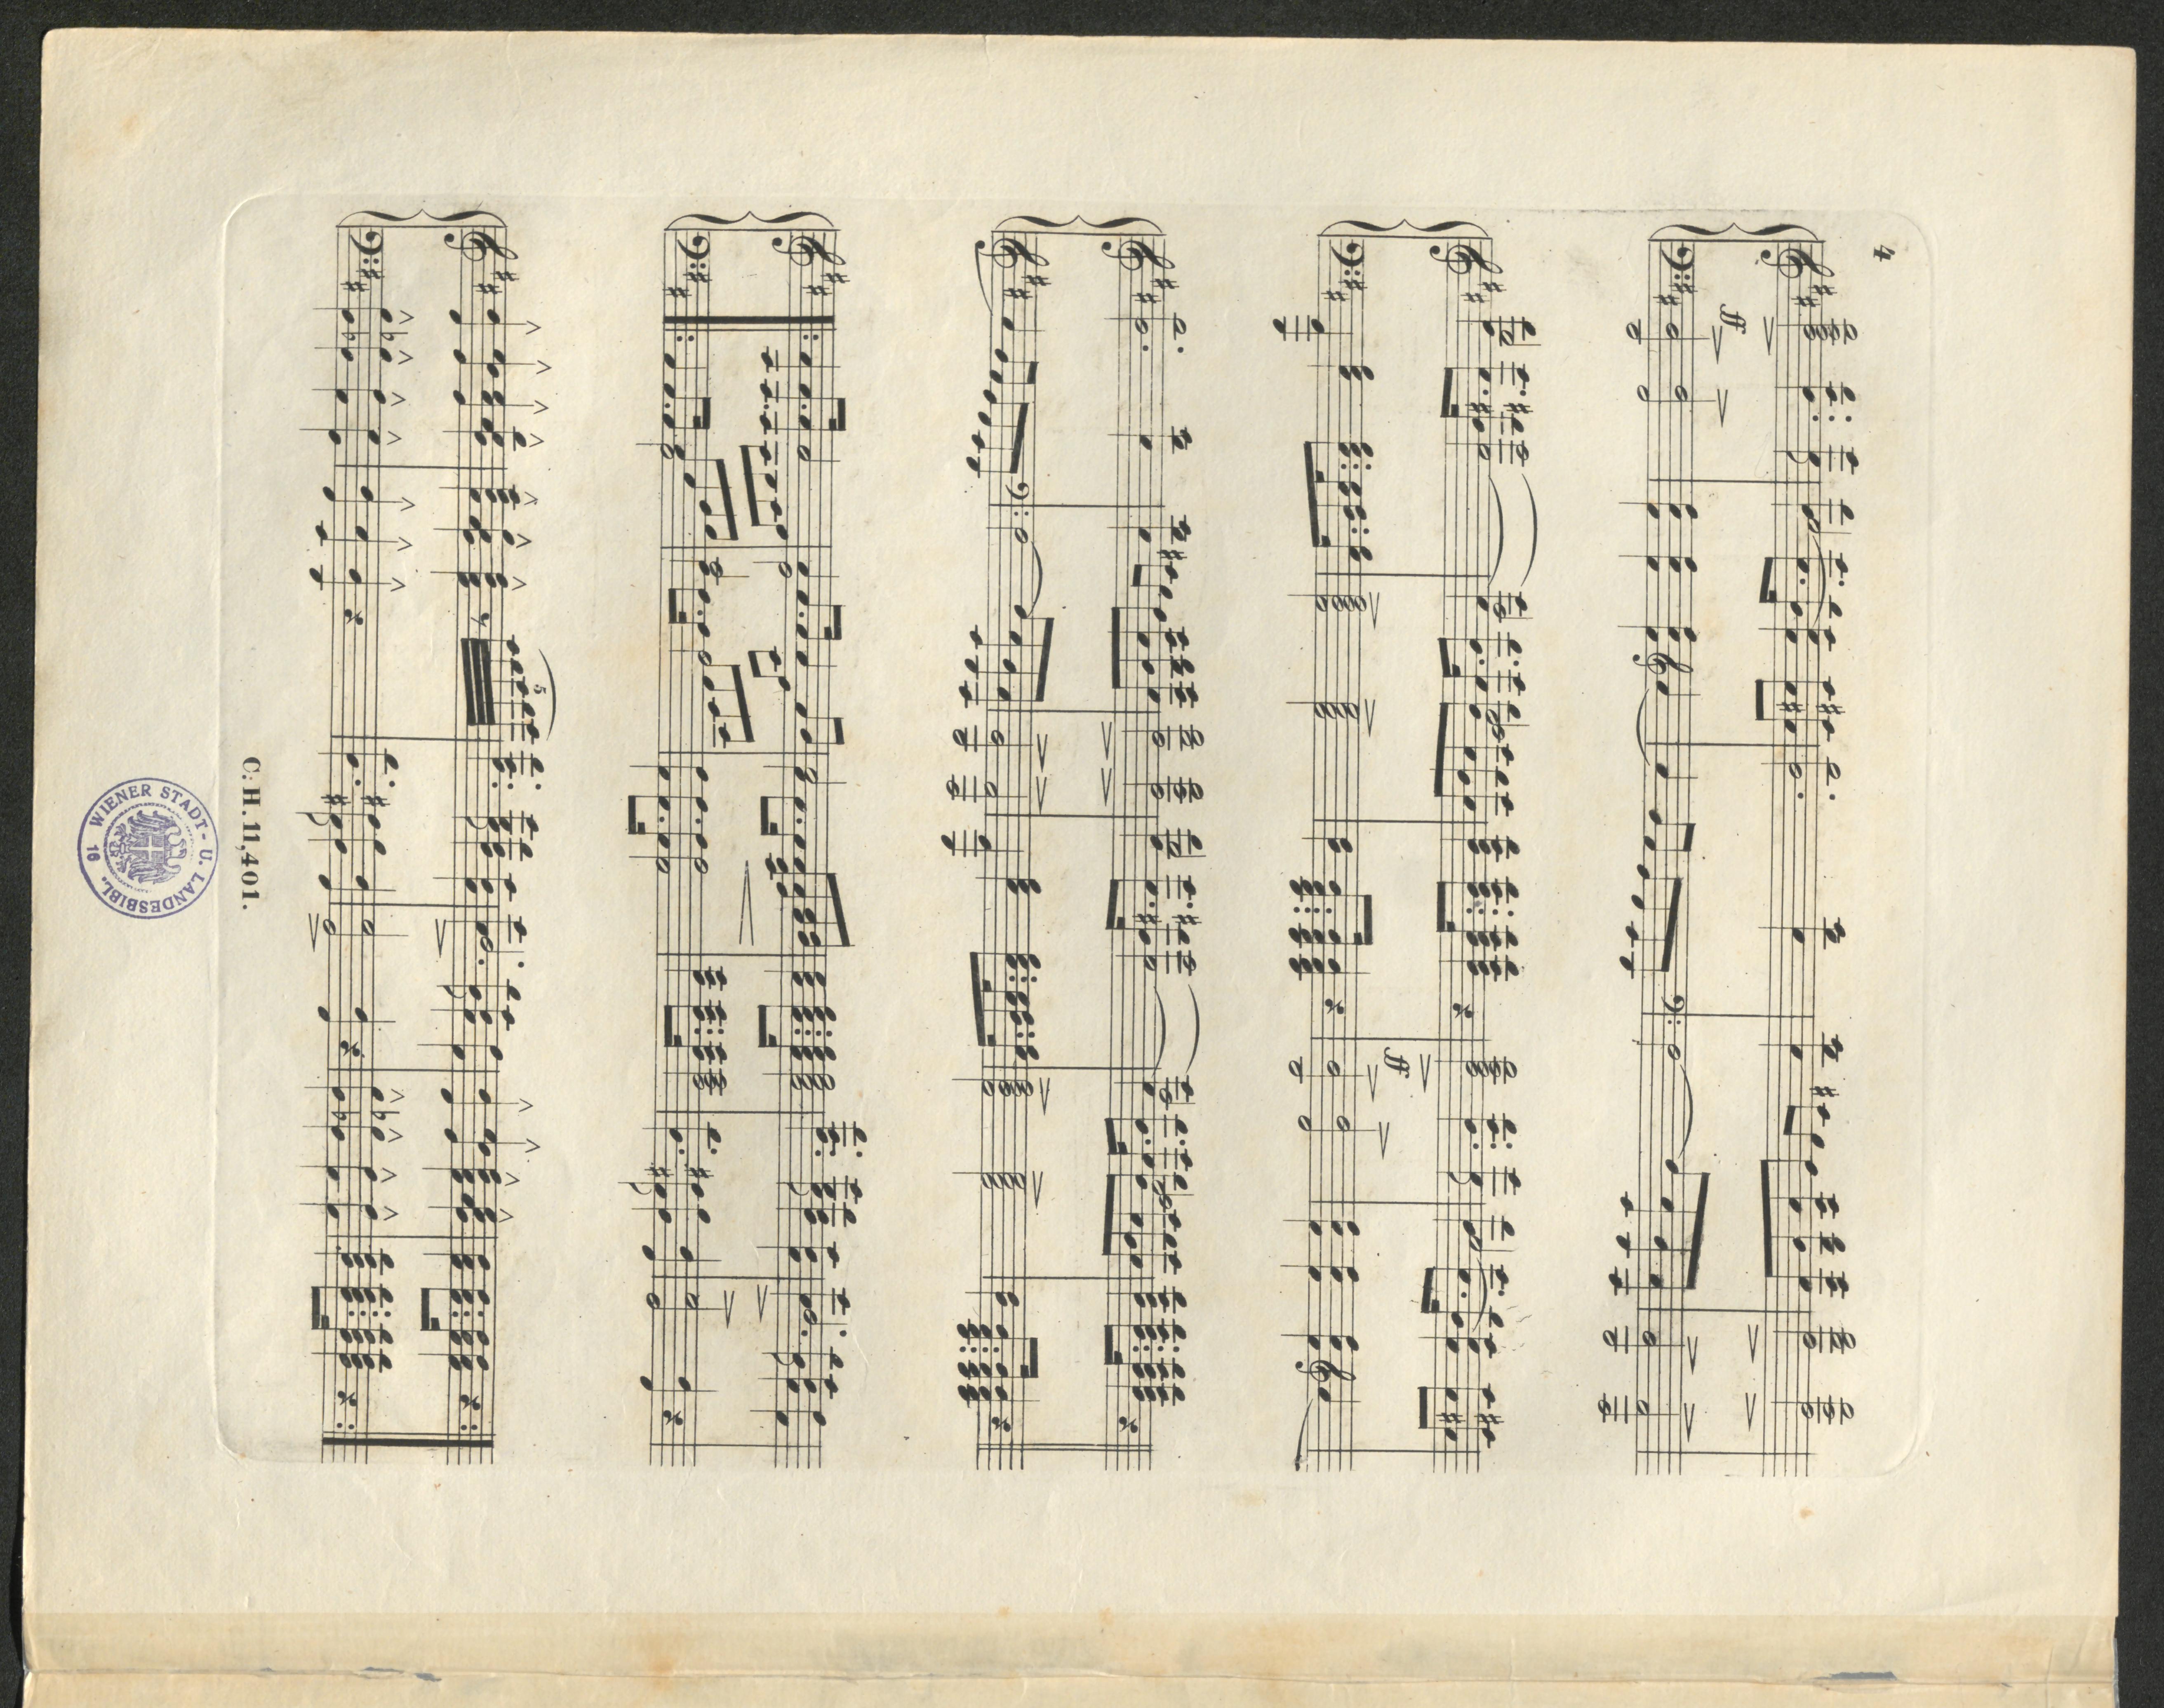 4
ff
ff
5
C: H. 11,401.
WIENER STADT- U. LANDESBIBL.
16